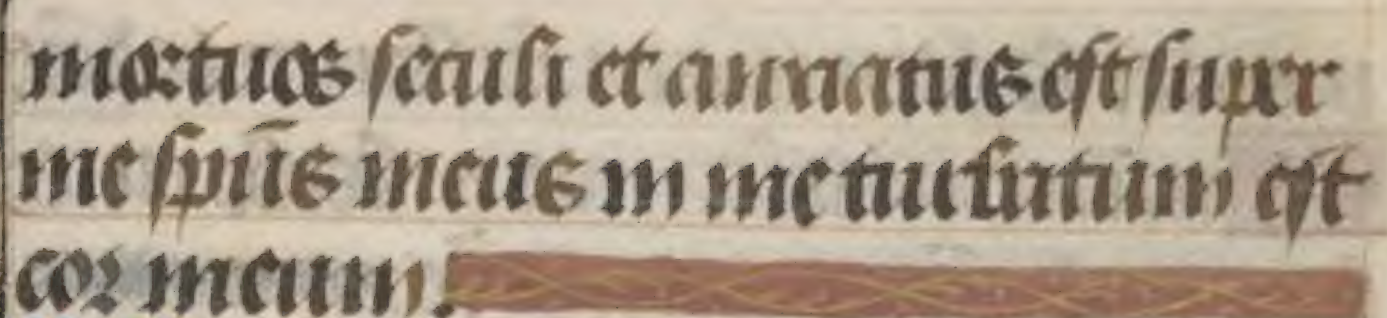 mortuos seculi et anxiatus est super
me sp̄us meus in me turbatum est
cor meum.